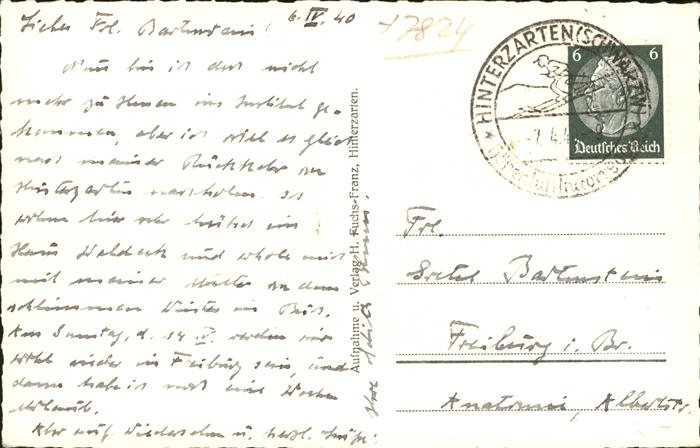 6. IV. 40
Liebes Frl. Bartenstein!
Nun bin ich doch nicht
mehr zu Ihnen ins Institut ge-
kommen, aber ich will es gleich
nach meiner Rückkehr von
Hinterzarten nachholen. Ich
wohne hier sehr hübsch im
Haus Waldeck und erhole mich
mit meiner Mutter von dem
schlimmen Winter in Bus.
Am Samstag, d. 14. IV. werden wir
wohl wieder in Freiburg sein, und
dann habe ich noch eine Woche
Urlaub.
Also auf Wiedersehen u. herzl. Grüße!
Ihre
Aufnahme u. Verlag H. Fuchs-Franz, Hinterzarten.
+7824
HINTERZARTEN (SCHWARZW)
-7.4.4
6 6
Deutsches Reich
Frl.
Gretel Bartenstein
Freiburg i. Br.
Anatomie, Albertstr.